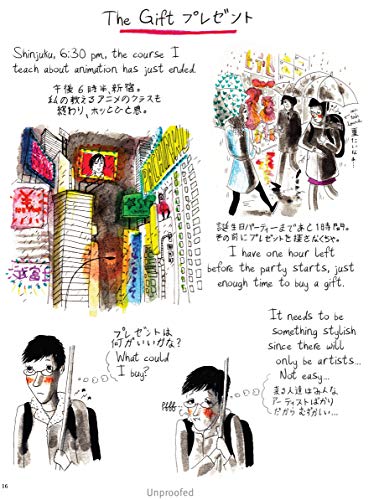 The Gift プレゼント
Shinjuku, 6:30 pm, the course I
teach about animation has just ended
午後6時半、新宿。
私の教えるアニメのクラスも
終わり、ホッとひと息。
誕生日パーティーまであと1時間。
その前にプレゼントを探さなくちゃ。
I have one hour left
before the party starts, just
enough time to buy a gift.
プレゼントは
何がいいかな?
What could
I buy?
It needs to be
something stylish
since there will
only be artists...
Not easy...
来る人達はみんな
アーティストばかり
だからむずかしい...
Pfff
16
Unproofed